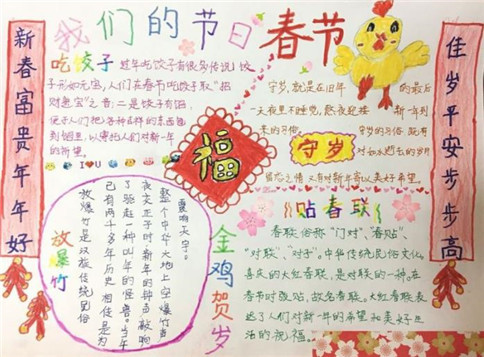 我们的节日 春节
新春富贵年年好
佳岁平安步步高
吃饺子
过年吃饺子有很多传说,饺
子形如元宝,人们在春节吃饺子取"招
财进宝"之音;二是饺子有馅,
便于人们把各种吉祥的东西包
到馅里,以寄托人们对新一年
的祈望。
I♥U
福
守岁,就是在旧年 的最后
一天夜里不睡觉,熬夜迎接 新一年到
来的习俗, 守岁的习俗,既有
守岁
对如水逝去的岁月
留恋之情,又有对新年寄以美好希望。
放爆竹
放爆竹是汉族传统习俗
已有两千多年历史 相传是为
了驱赶一种叫年的怪兽。当午
夜交正子时,新年的钟声敲响,
整个中华大地上空爆竹声
震响天宇。
金鸡贺岁
贴春联
春联俗称"门对"、"春贴"、
"对联"、"对子"。中华传统民俗文化
喜庆的大红春联,是对联的一种。在
春节时张贴,故名春联。大红春联表
达了人们对新一年的希望和美好生
活的祝福。